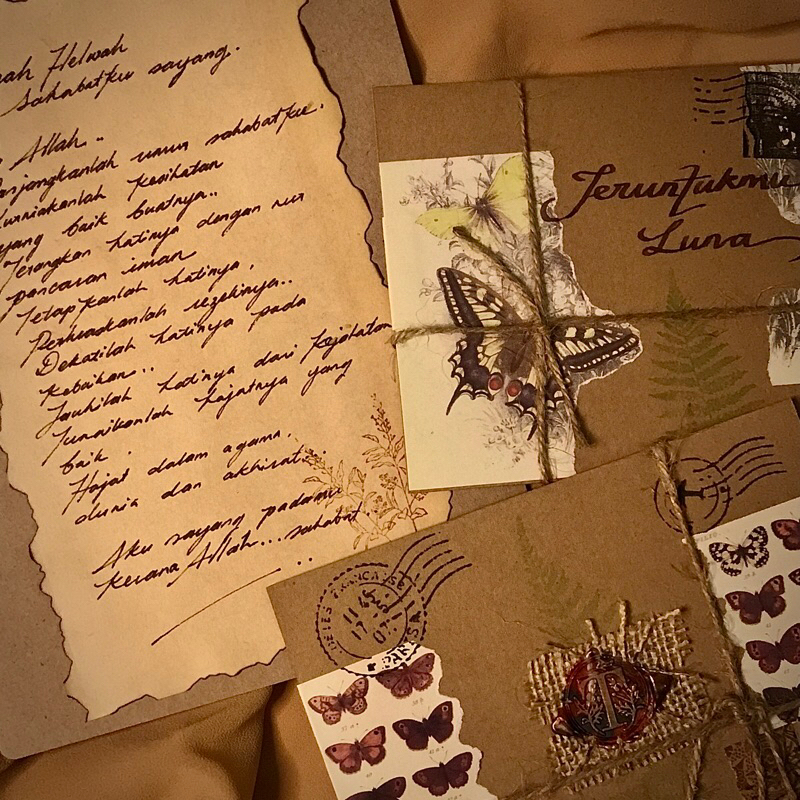 Helwah
Sahabatku sayang.
Allah..
Panjangkanlah umur sahabatku.
Kurniakanlah kesihatan
yang baik buatnya..
Terangkan hatinya dengan nur
pancaran iman
Tetapkanlah hatinya,
Perluaskanlah rezekinya..
Dekatilah hatinya pada
kebaikan..
Jauhilah hatinya dari kejahatan
Tunaikanlah hajatnya yang
baik.
Hajat dalam agama,
dunia dan akhirat..
Aku sayang padamu
kerana Allah... sahabat
..
Teruntukmu
Luna